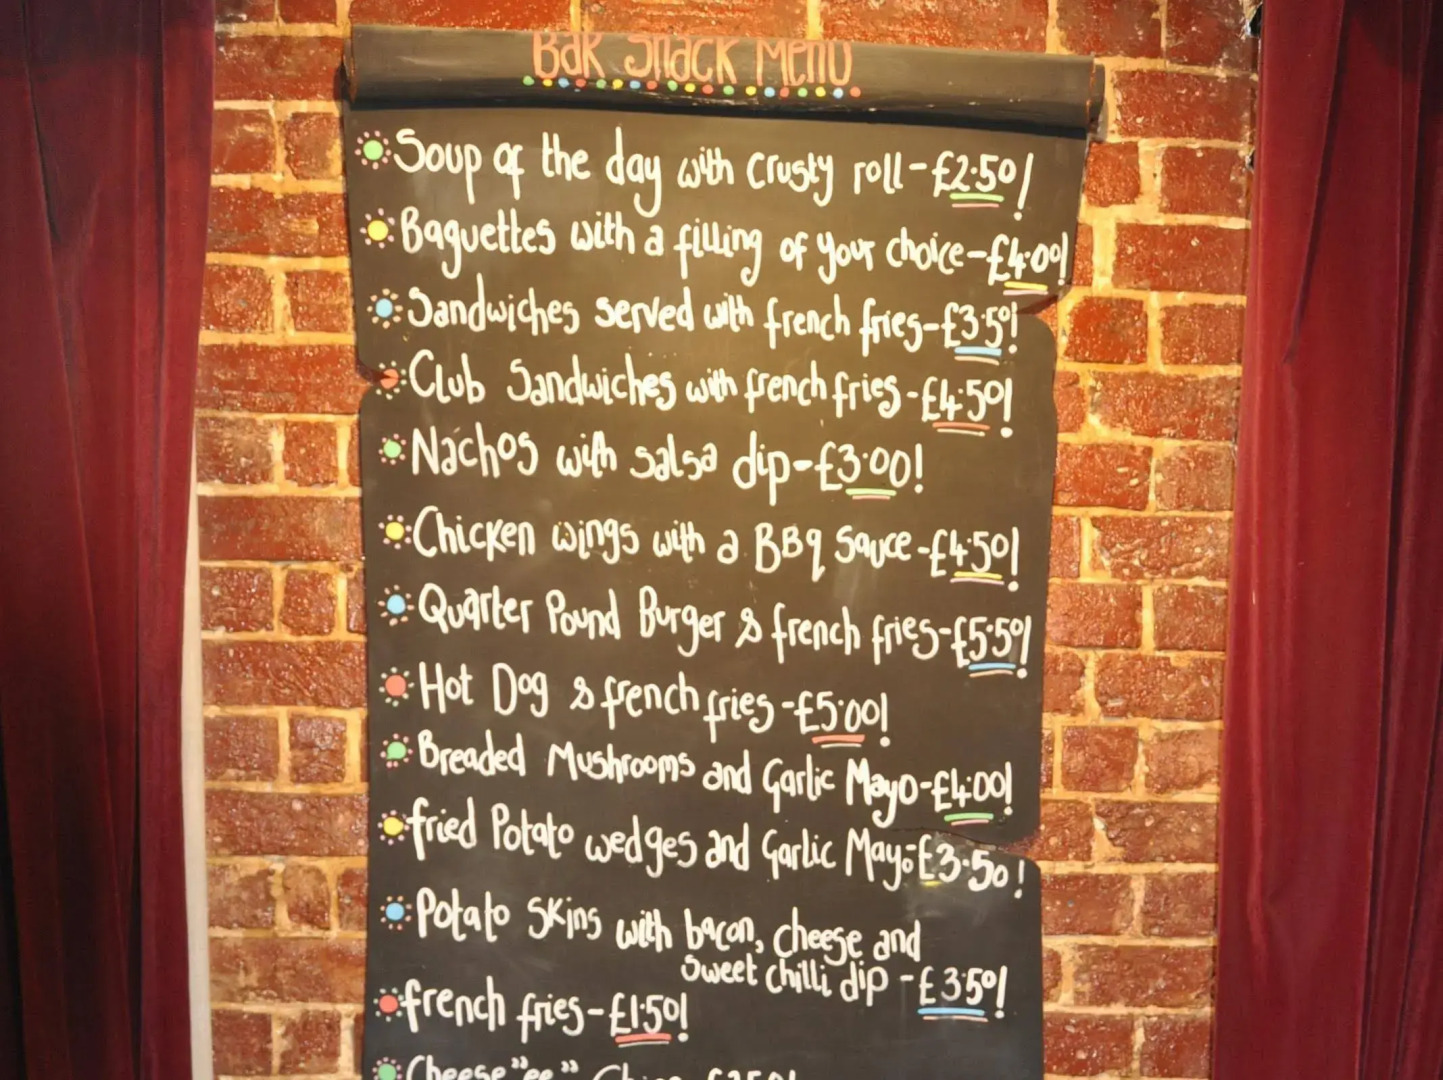 Bar Snack Menu
Soup of the day with crusty roll-£2.50!
Baguettes with a filling of your choice-£4.00!
Sandwiches served with french fries-£3.50!
Club Sandwiches with french fries-£4.50!
Nachos with salsa dip-£3.00!
Chicken wings with a BBq Sauce-£4.50!
Quarter Pound Burger & french fries-£5.50!
Hot Dog & french fries-£5.00!
Breaded Mushrooms and Garlic Mayo-£4.00!
fried Potato wedges and Garlic Mayo-£3.50!
Potato Skins with bacon, cheese and
sweet chilli dip-£3.50!
french fries-£1.50!
Cheese "ee"